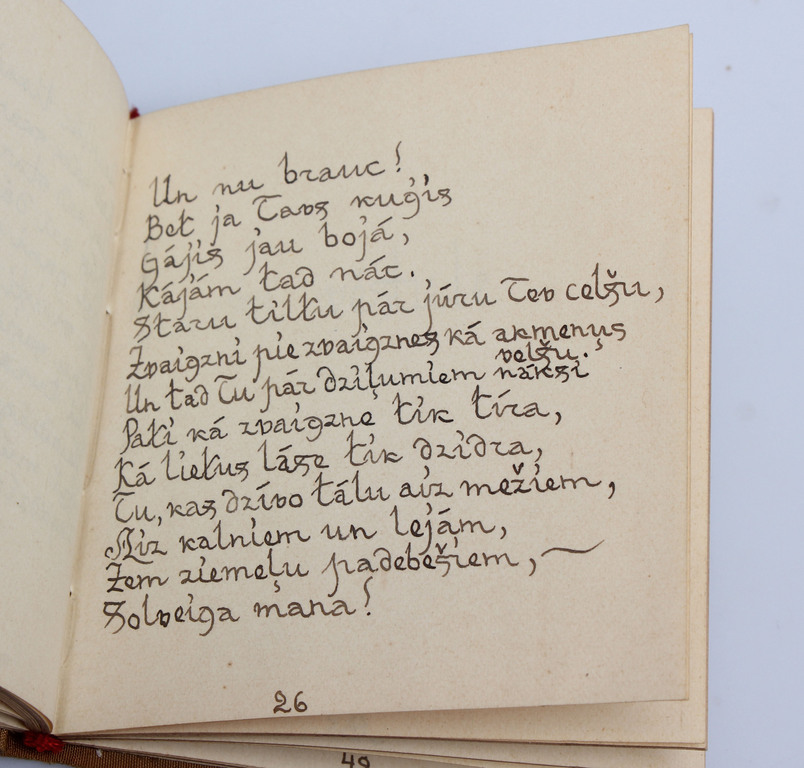 Un nu brauc!
Bet ja Tavs kuģis
Gájis jau bojá,
Kájám tad nác.
Staru tiltu pár júru Tev celšu,
Zvaigzni pie zvaigznes ká akmeņus
velšu.
Un tad Tu pár dziļumiem náksi
Pati ká zvaigzne tik tíra,
Ká lietus láse tik dzidra,
Tu, kas dzívo tálu aiz mežiem,
Aiz kalniem un lejám,
Zem ziemeļu padebešiem, —
Solveiga mana!
26
49